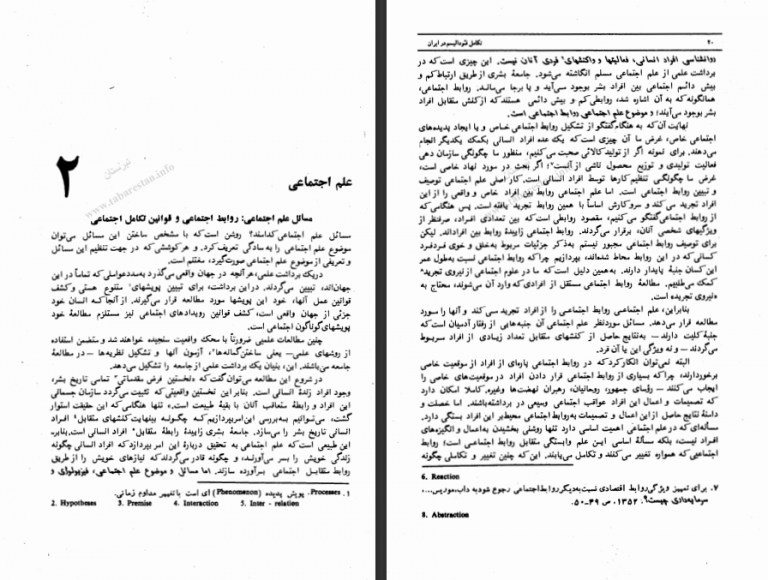 ۲
تبرستان
www.tabarestan.info
علم اجتماعی
مسائل علم اجتماعی: روابط اجتماعی و قوانین تکامل اجتماعی
مسائل علم اجتماعی کدامند؟ روشن است که با مشخص ساختن این مسائل می‌توان
موضوع علم اجتماعی را به سادگی تعریف کرد. و هر کوششی که در جهت تنظیم این مسائل
و تعریفی از موضوع علم اجتماعی صورت گیرد، مغتنم است.
در یک برداشت علمی، هر آنچه در جهان واقعی می‌گذرد به مدد عواملی که تماماً در این
جهان‌اند، تبیین می‌گردند. در این برداشت، برای تبیین پویشهای¹ متنوع هستی و کشف
قوانین عمل آنها، خود این پویشها مورد مطالعه قرار می‌گیرند. از آنجا که انسان خود
جزئی از جهان واقعی است، کشف قوانین رویدادهای اجتماعی نیز مستلزم مطالعهٔ خود
پویشهای گوناگون اجتماعی است.
چنین مطالعات علمی ضرورتاً با محک واقعیت سنجیده خواهند شد و متضمن استفاده
از روشهای علمی — یعنی ساختن گمانه‌ها²، آزمون آنها و تشکیل نظریه‌ها — در مطالعهٔ
جامعه می‌باشند. این، بنیان یک برداشت علمی از جامعه را تشکیل می‌دهد.
در شروع این مطالعه می‌توان گفت که «نخستین فرض مقدماتی³ تمامی تاریخ بشر،
وجود افراد زندهٔ انسانی است. بنابر این نخستین واقعیتی که تثبیت می‌گردد سازمان جسمانی
این افراد و رابطهٔ متعاقب آنان با بقیهٔ طبیعت است.» تنها هنگامی که این حقیقت استوار
گشت، می‌توانیم به بررسی این امر بپردازیم که چگونه برهمکنشهای متقابل⁴ افراد
انسانی تاریخ بشر را می‌سازد. جامعه بشری زاییدهٔ رابطهٔ متقابل⁵ افراد انسانی است. بنابر
این طبیعی است که علم اجتماعی به تحقیق دربارهٔ این امر بپردازد که افراد انسانی چگونه
زندگی خویش را بسر می‌آورند، و چگونه قادر می‌گردند که نیازهای خویش را از طریق
روابط متقابل اجتماعی برآورده سازند. اما مسائل و موضوع علم اجتماعی، فیزیولوژی و
۱. Processes. پویش پدیده (Phenomenon) ای است با تغییر مداوم زمانی.
2. Hypotheses 3. Premise 4. Interaction 5. Inter - relation
۴۰ تکامل فئودالیسم در ایران
روانشناسی افراد انسانی، فعالیتها و واکنشهای⁶ فردی آنان نیست. این چیزی است که در
برداشت علمی از علم اجتماعی مسلم انگاشته می‌شود. جامعهٔ بشری از طریق ارتباط کم و
بیش دائم اجتماعی بین افراد بشر بوجود می‌آید و یا برجا می‌ماند. روابط اجتماعی،
همانگونه که به آن اشاره شد، روابطی کم و بیش دائمی هستند که از کنش متقابل افراد
بشر بوجود می‌آیند؛ و موضوع علم اجتماعی روابط اجتماعی است.
نهایت آن که به هنگام گفتگو از تشکیل روابط اجتماعی خاص و یا ایجاد پدیده‌های
اجتماعی خاص، غرض ما آن چیزی است که یک عده افراد انسانی بکمک یکدیگر انجام
می‌دهند. برای نمونه اگر از تولید کالائی صحبت می‌کنیم، منظور ما چگونگی سازمان دهی
فعالیت تولیدی و توزیع محصول ناشی از آنست⁷؛ اگر بحث در مورد نهاد خاصی است،
غرض ما چگونگی تنظیم کارها توسط افراد انسانی است. کار اصلی علم اجتماعی توصیف
و تبیین روابط اجتماعی است. اما علم اجتماعی روابط بین افراد خاص و واقعی را از این
افراد تجرید می‌کند و سر و کارش اساساً با همین روابط تجرید یافته است. پس هنگامی که
از روابط اجتماعی گفتگو می‌کنیم، مقصود روابطی است که بین تعدادی افراد، صرفنظر از
ویژگیهای شخصی آنان، برقرار می‌گردد. روابط اجتماعی زاییدهٔ روابط بین افراد اند. لیکن
برای توصیف روابط اجتماعی مجبور نیستم به ذکر جزئیات مربوط به خلق و خوی فرد فرد
کسانی که در این روابط محاط شده‌اند، بپردازیم چرا که روابط اجتماعی نسبت به طول عمر
این کسان جنبهٔ پایدار دارند. به همین دلیل است که ما در علوم اجتماعی از نیروی تجرید⁸
کمک می‌طلبیم. مطالعهٔ روابط اجتماعی مستقل از افرادی که وارد آن می‌شوند، محتاج به
«نیروی تجرید» است.
بنابراین، علم اجتماعی روابط اجتماعی را از افراد تجرید می‌کند و آنها را مورد
مطالعه قرار می‌دهد. مسائل مورد نظر علم اجتماعی آن جنبه‌هایی از رفتار آدمیان است که
جنبهٔ کلیت دارند — به نتایج حاصل از کنشهای متقابل تعداد زیادی از افراد مربوط
می‌گردند — و نه ویژگی این یا آن فرد.
البته نمی‌توان انکار کرد که در روابط اجتماعی پاره‌ای از افراد از موقعیت خاصی
برخوردارند، چرا که بسیاری از روابط اجتماعی قرار دادن افراد در موقعیت‌های خاص را
ایجاب می‌کنند — رؤسای جمهور، روحانیان، رهبران نهضت‌ها و غیره. کاملاً امکان دارد
که تصمیمات و اعمال این افراد عواقب اجتماعی وسیعی در برداشته باشند. اما خصلت و
دامنهٔ نتایج حاصل از این اعمال و تصمیمات به روابط اجتماعی محیط بر این افراد بستگی دارد.
مسأله‌ای که در علم اجتماعی اهمیت اساسی دارد تنها روشنی بخشیدن به اعمال و انگیزه‌های
افراد نیست، بلکه مسألهٔ اساسی این علم وابستگی متقابل روابط اجتماعی است؛ روابط
اجتماعیی که همواره تغییر می‌کنند و تکامل می‌یابند. این که چنین تغییر و تکاملی چگونه
6. Reaction
۷. برای تمییز ویژگی روابط اقتصادی نسبت به دیگر روابط اجتماعی رجوع شود به داب، موریس،...
سرمایه‌داری چیست؟، ۱۳۵۲، ص ۴۹–۵۰.
8. Abstraction